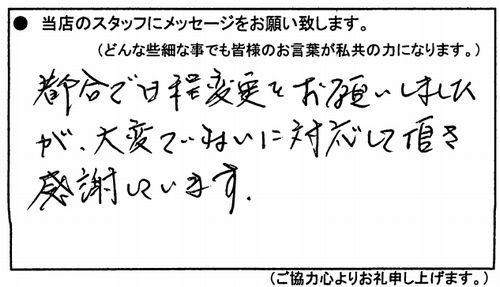 ● 当店のスタッフにメッセージをお願い致します。
(どんな些細な事でも皆様のお言葉が私共の力になります。)
都合で日程変更をお願いしました
が、大変ていねいに対応して頂き
感謝しています.
(ご協力心よりお礼申し上げます。)